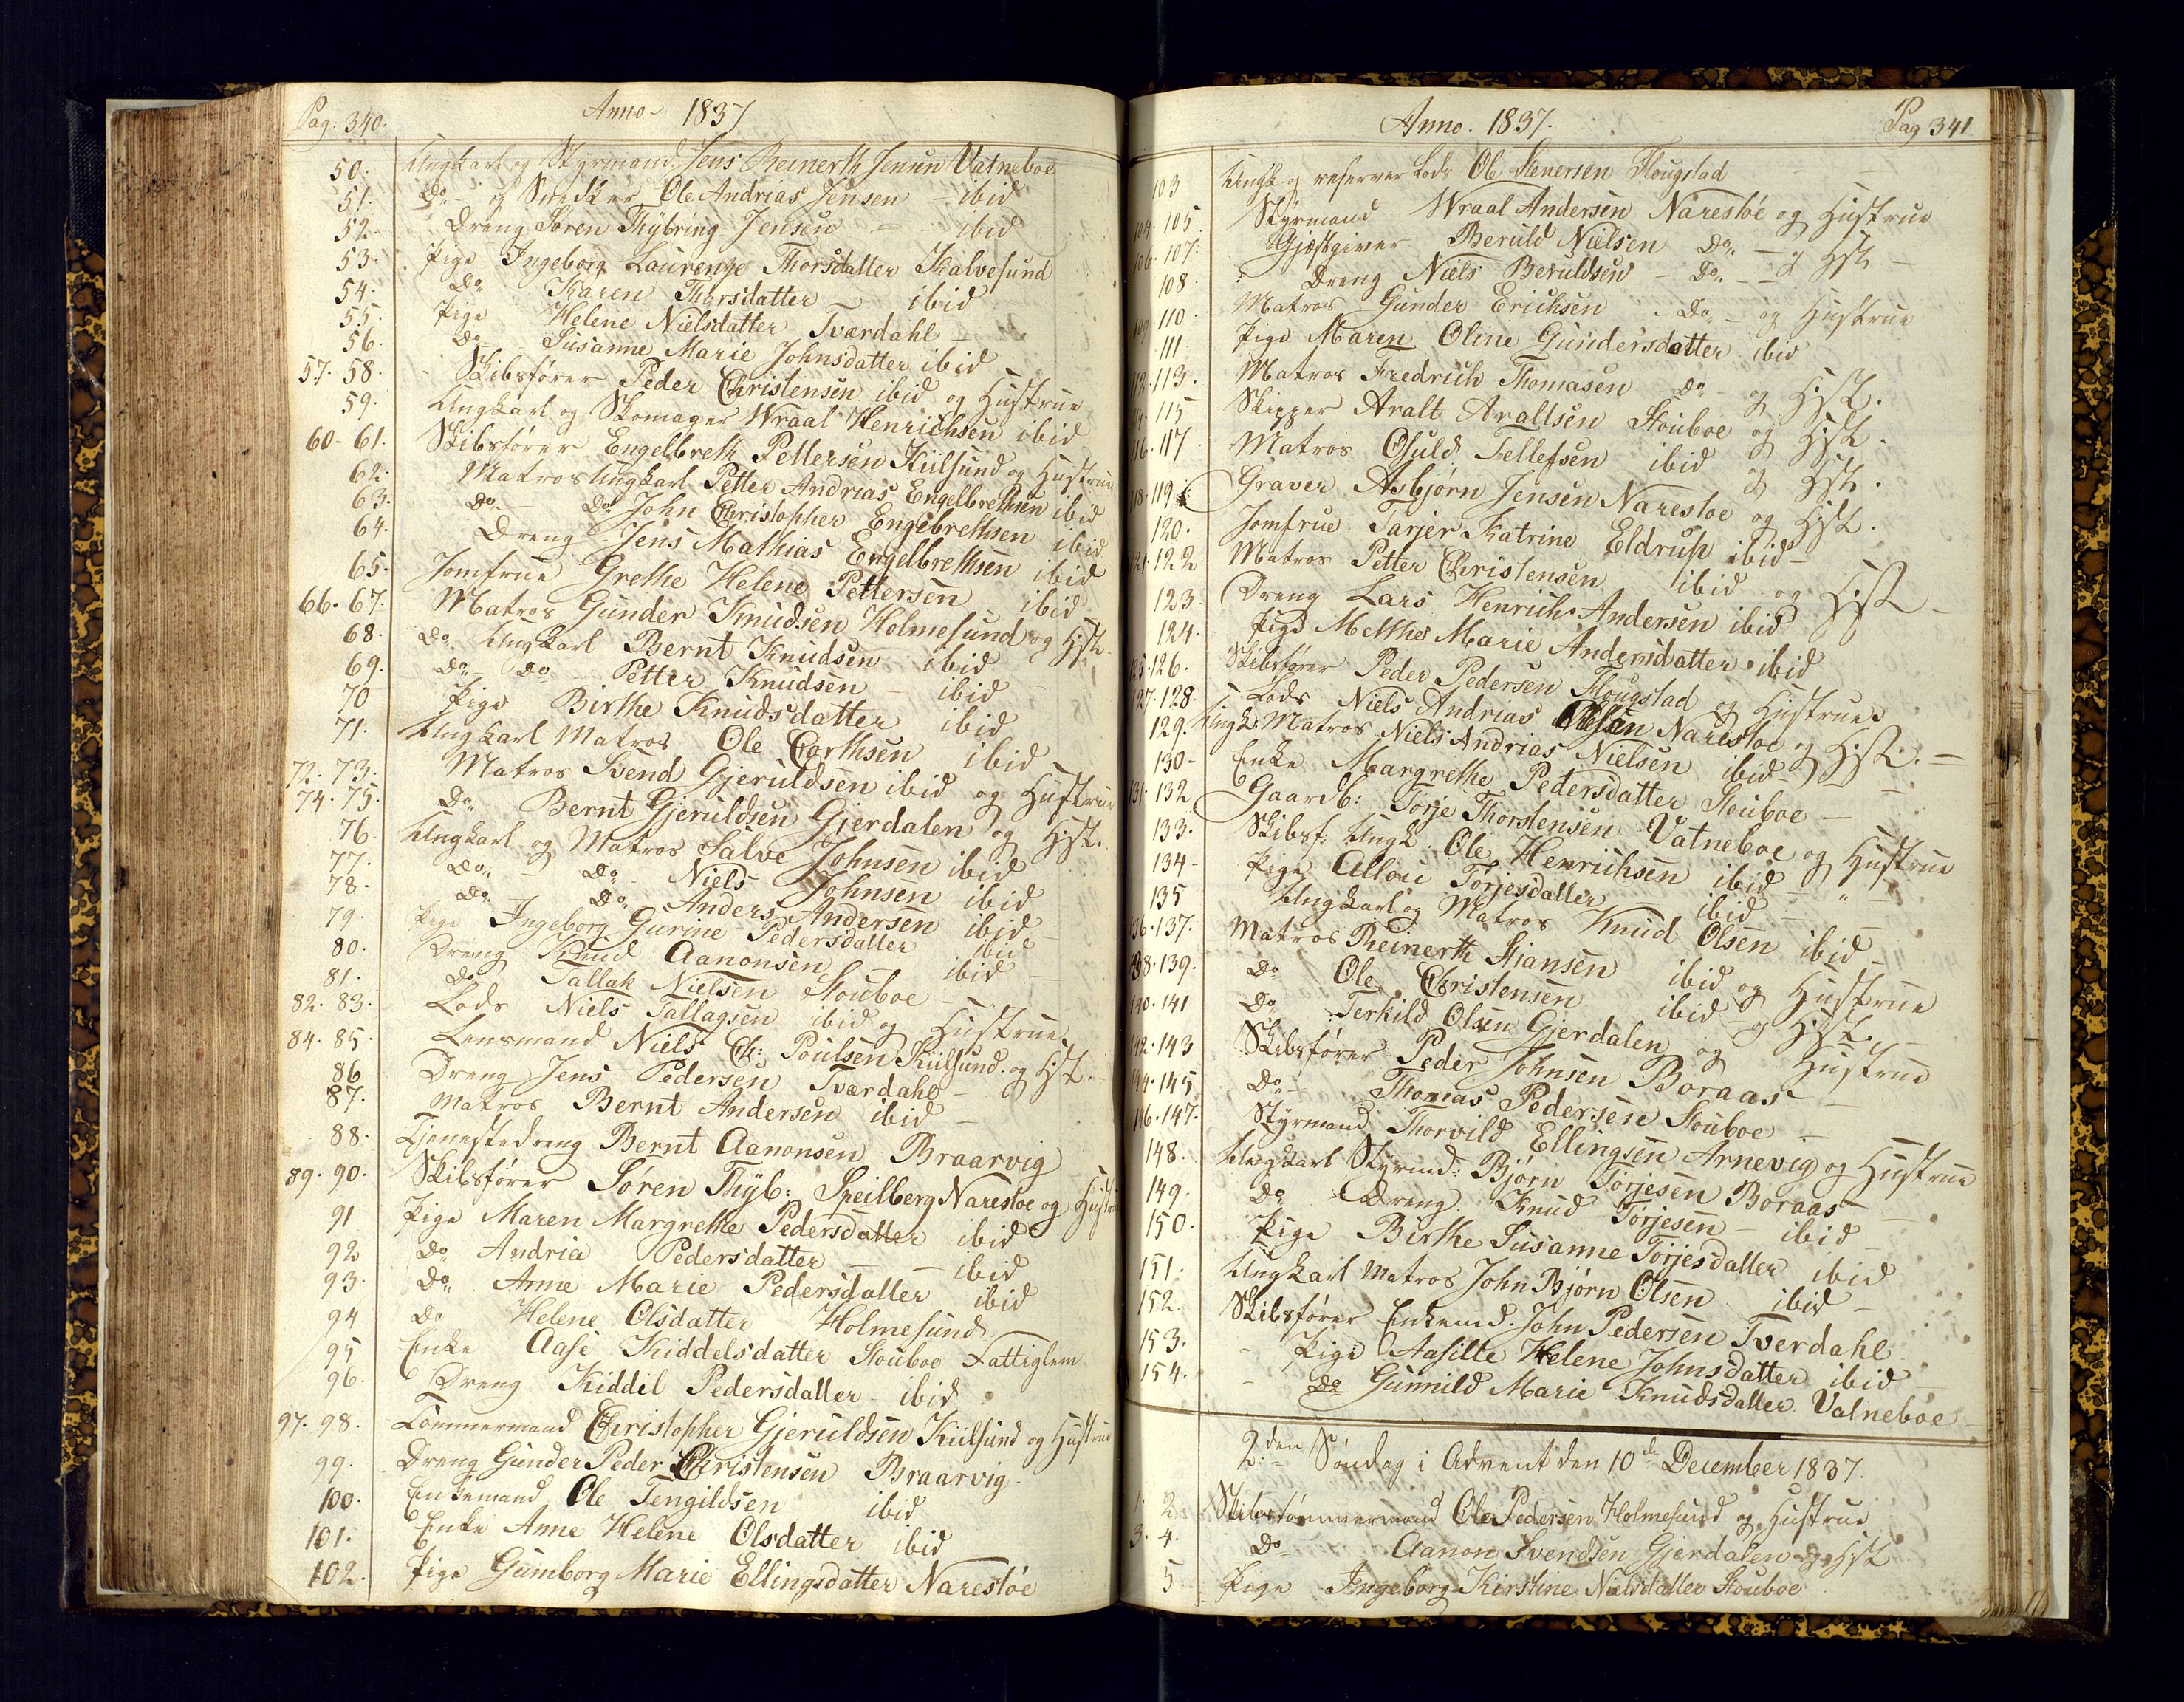 Pag: 340.
Anno 1837
50. Ungkarl og Styrmand. Jens Reinerth Jensen Vatneboe
51. Do og Snedker Ole Andrias Jensen - ibid
52. Dreng Søren Thybring Jensen - ibid
53. Pige Ingeborg Laurenze Thorsdatter Kalvesund
54. Do Karen Thorsdatter - ibid
55. Pige Helene Nielsdatter Tværdahl
56. Do Susanne Marie Johnsdatter ibid
57. 58. Skibsfører Peder Christensen ibid og Hustrue
59. Ungkarl og Skomager Wraal Henrichsen ibid
60-61. Skibsfører Engelbreth Pettersen Kiilsund og Hustrue
62. Matros Ungkarl Petter Andrias Engelbrethsen ibid
63. Do - Do John Christopher Engebrethsen ibid
64. Dreng Jens Mathias Engelbrethsen ibid
65. Jomfrue Grethe Helene Pettersen ibid
66. 67. Matros Gunder Knudsen Holmesund og Hst.
68. Do Ungkarl Bernt Knudsen ibid
69. Do Do Petter Knudsen - ibid
70 Pige Birthe Knudsdatter ibid
71. Ungkarl Matros Ole Corthsen ibid
72. 73. Matros Svend Gjeruldsen ibid og Hustrue
74. 75. Do Bernt Gjeruldsen Gjerdalen og Hst.
76. Ungkarl og Matros Salve Johnsen ibid
77. Do - Do Niels Johnsen ibid
78. Do Do Anders Andersen ibid
79. Pige Ingeborg Gurine Pedersdatter ibid
80. Dreng Knud Aanonsen ibid
81. Do Tallak Nielsen Stouboe -
82. 83. Lods Niels Tallagsen ibid og Hustrue
84. 85. Lensmand Niels Ch: Poulsen Kiilsund. og Hst.
86 Dreng Jens Pedersen Tværdahl -
87. Matros Bernt Andersen ibid -
88. Tjenestedreng Bernt Aanonsen Braarvig
89. 90. Skibsfører Søren Thyb: Speilberg Narestoe og Hustrue
91 Pige Maren Margrethe Pedersdatter ibid
92 Do Andria Pedersdatter - - ibid
93. Do Anne Marie Pedersdatter ibid
94 Do Helene Olsdatter Holmesund
95 Enke Aase Kiddelsdatter Stouboe Fattiglem
96. Dreng Kiddel Pedersdatter - ibid
97. 98. Tømmermand Christopher Gjeruldsen Kiilsund og Hustrue
99. Dreng Gunder Peder Christensen Braarvig
100. Enkemand Ole Tengildsen ibid
101. Enke Anne Helene Olsdatter ibid
102. Pige Gumborg Marie Ellingsdatter Narestøe
Anno. 1837.
Pag 341
103 Ungk. og reserver Lods Ole Stenersen Flougstad
104. 105. Styrmand Wraal Andersen Narestøe og Hustrue
106. 107. Gjæstgiver Beruld Nielsen Do - og Hst -
108 Dreng Niels Beruldsen - Do -
109. 110. Matros Gunder Erichsen - Do - og Hustrue
111 Pige Maren Oline Gundersdatter ibid
112. 113. Matros Fredrich Thomasen Do - og Hst.
114. 115 Skipper Aralt Araltsen Stouboe og Hst.
116. 117 Matros Osuld Tellefsen ibid og Hst.
118. 119. Graver Asbjørn Jensen Narestoe og Hst.
120. Jomfrue Tarjer Katrine Eldrup ibid -
121. 122 Matros Petter Christensen ibid og Hst -
123. Dreng Lars Henrich Andersen ibid
124. Pige Metthe Marie Andersdatter ibid
125. 126. Skibsfører Peder Pedersen Flougstad og Hustrue
127. 128. Lods Niels Andrias Olsen Narestoe og Hst. -
129. Ungk: Matros Niels Andrias Nielsen ibid -
130- Enke Margrethe Pedersdatter Stouboe -
131. 132 Gaardb: Torje Thorstensen Vatneboe og Hustrue
133. Skibsf: Ungk. Ole Henrichsen ibid - " -
134- Pige Torjesdatter ibid -
135 Ungkarl og Matros Knud Olsen ibid -
136. 137. Matros Reinerth Stjansen ibid og Hustrue
138. 139. Do Ole Christensen ibid og Hst. -
140. 141 Do Terkild Olsen Gjerdalen og Hustrue
142. 143 Skibsfører Peder Johnsen Boraas -
144. 145 Do - Thomas Pedersen Stouboe -
146. 147. Styrmand Thorvild Ellingsen Arnevig og Hustrue
148. Ungkarl Styrmd: Bjørn Torjesen Boraas -
149. Do - Dreng Knud Torjesen - ibid
150. Pige Birthe Susanne Torjesdatter ibid
151. Ungkarl Matros John Bjørn Olsen ibid -
152. Skibsfører Enkemd. John Pedersen Tverdahl
153. - Pige Aasille Helene Johnsdatter ibid
154. - Do Gunnild Marie Knudsdatter Vatneboe
2den Søndag i Advent den 10de December 1837.
1. 2 Skibstømmermand Ole Pedersen Holmesund og Hustrue
3. 4. Do Aanon Svendsen Gjerdalen og Hst
5 Pige Ingeborg Kirstine Nielsdatter Stouboe